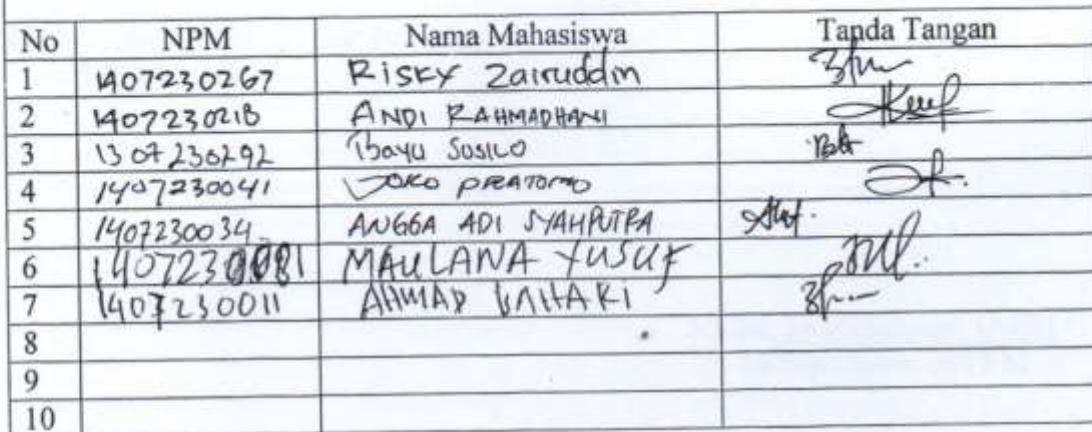 No NPM Nama Mahasiswa Tanda Tangan
1 1407230267 Risky Zairuddin
2 1407230218 ANDI RAHMADHANI
3 1307230292 Bayu SOSILO
4 1407230041 JOKO PRATOMO
5 1407230034 ANGGA ADI SYAHPUTRA
6 1407230081 MAULANA YUSUF
7 1407230011 AHMAD BAIHAKI
8
9
10